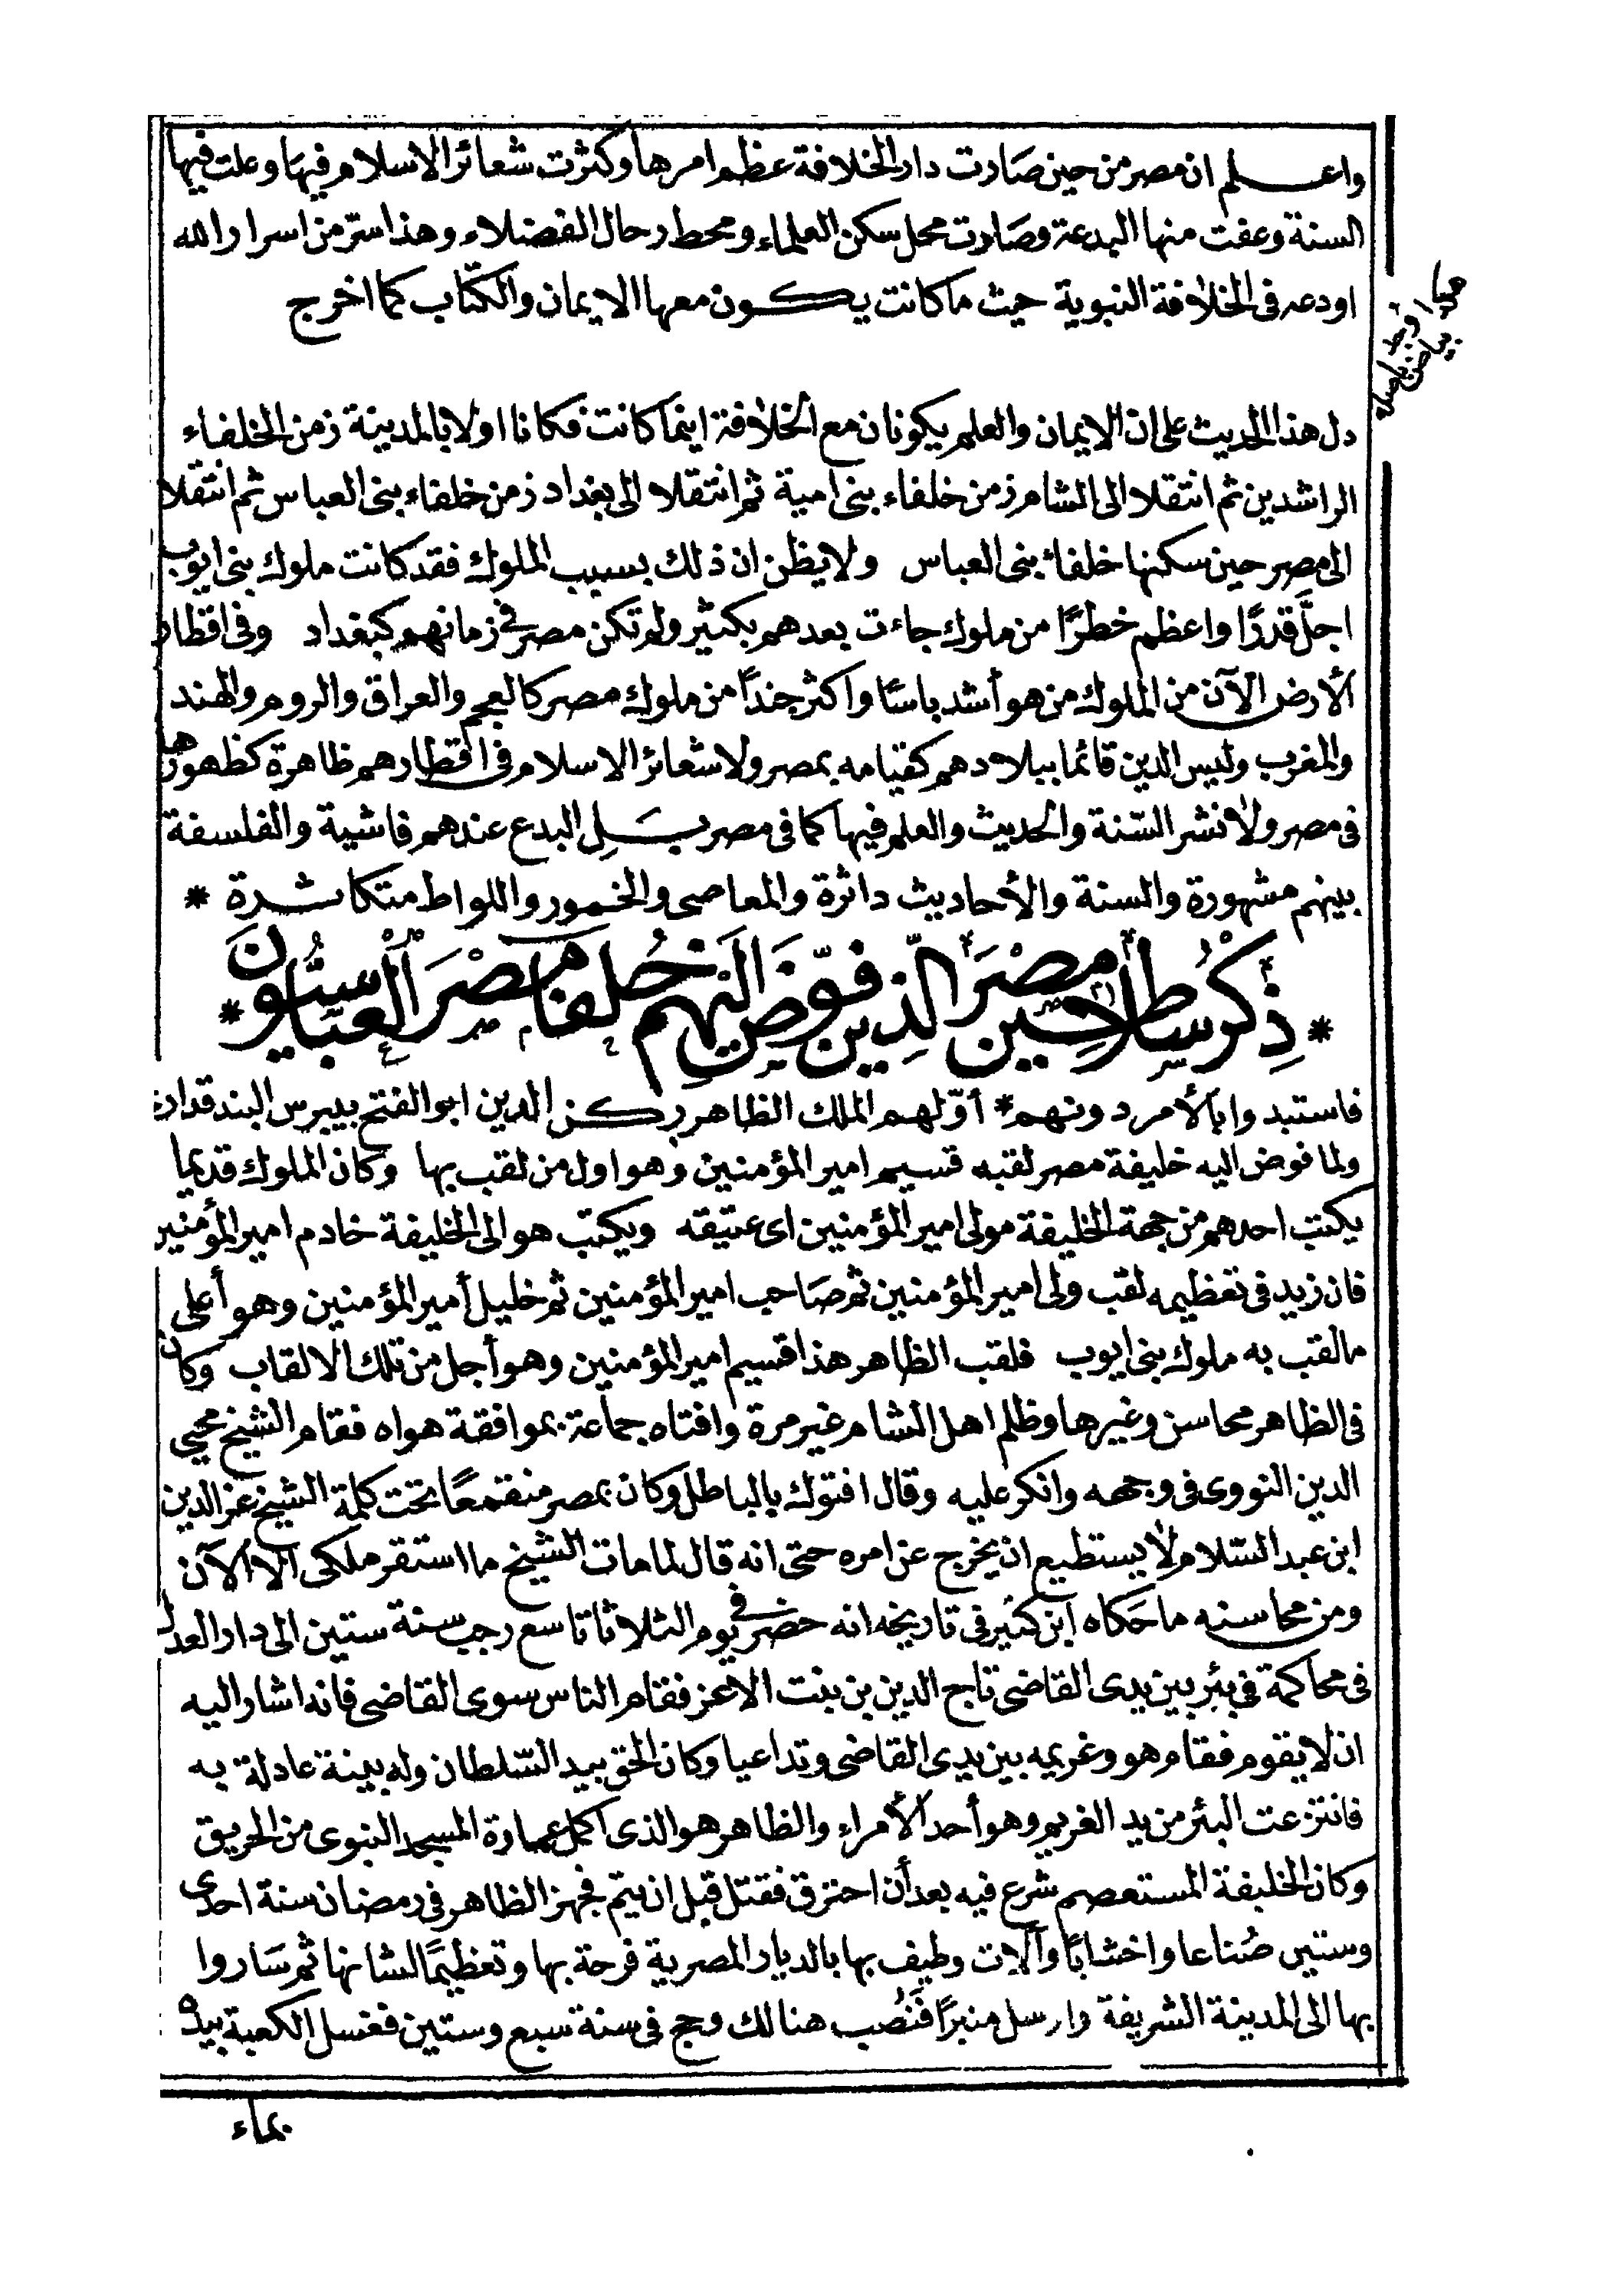 واعلم ان مصر من حين صارت دار الخلافة عظم امرها وكثرت شعائر الاسلام فيها وعلت فيها
السنة وعفت منها البدعة وصارت محل سكن العلماء ومحط رحال الفضلاء وهذا سرّ من اسرار الله
اودعه فى الخلافة النبوية حيث ما كانت يكون معها الايمان والكتّاب كما اخرج
دل هذا الحديث على ان الايمان والعلم يكونان مع الخلافة اينما كانت فكانا اولا بالمدينة زمن الخلفاء
الراشدين ثم انتقلا الى الشام زمن خلفاء بنى امية ثم انتقلا الى بغداد زمن خلفاء بنى العباس ثم انتقلا
الى مصر حين سكنها خلفاء بنى العباس ولا يظن ان ذلك بسبب الملوك فقد كانت ملوك بنى ايوب
اجلَّ قدرًا واعظم خطرًا من ملوك جاءت بعدهم بكثير ولم تكن مصر فى زمانهم كبغداد وفى اقطار
الأرض الآن من الملوك من هو أشد باسًا واكثر جندًا من ملوك مصر كالعجم والعراق والروم والهند
والمغرب وليس الدين قائما ببلادهم كقيامه بمصر ولا شعائر الاسلام فى اقطارهم ظاهرة كظهورها
فى مصر ولا نشر السّنة والحديث والعلم فيها كما فى مصر بَلِ البدع عندهم فاشية والفلسفة
بينهم مشهورة والسنة والأحاديث داثرة والمعاصى والخمور واللواط متكاثرة *
* ذِكْرُ سلاطين مصْرَ الَّذِين فوّضَ الَيْهم خُلفاء مِصْرَ العبّاسيُّونَ *
فاستبدوا بالأمر دونهم * أوّلهم الملك الظاهر ركن الدين ابو الفتح بيبرس البندقدارى
ولما فوض اليه خليفة مصر لقبه قسيم امير المؤمنين وهو اول من لقب بها وكان الملوك قديما
يكتب احدهم من جهة الخليفة مولى امير المؤمنين اى عتيقه ويكتب هو الى الخليفة خادم امير المؤمنين
فان زيد فى تعظيمه لقب ولى امير المؤمنين ثم صاحب امير المؤمنين ثم خليل أمير المؤمنين وهو أعلى
ما لقب به ملوك بنى ايوب فلقب الظاهر هذا قسيم امير المؤمنين وهو أجل من تلك الالقاب وكان
فى الظاهر محاسن وغيرها وظلم اهل الشام غير مرة وافتاه جماعة بموافقة هواه فقام الشيخ محيي
الدين النووى فى وجهه وانكر عليه وقال افتوك بالباطل وكان بمصر منقمعًا تحت كلمة الشيخ عز الدين
ابن عبد السّلام لا يستطيع ان يخرج عن امره حتى انه قال لما مات الشيخ ما استقر ملكى الا الآن
ومن محاسنه ما حكاه ابن كثير فى تاريخه انه حضر فى يوم الثلاثا تاسع رجب سنة ستين الى دار العدل
فى محاكمة فى بئر بين يدى القاضى تاج الدين بن بنت الاعز فقام الناس سوى القاضى فانه اشار اليه
ان لا يقوم فقام هو وغريمه بين يدى القاضى وتداعيا وكان الحق بيد السّلطان وله بينة عادلة به
فانتزعت البئر من يد الغريم وهو أحد الأمراء والظاهر هو الذى اكمل عمارة المسجد النبوى من الحريق
وكان الخليفة المستعصم شرع فيه بعد أن احترق فقتل قبل ان يتم فجهز الظاهر فى رمضان سنة احدى
وستين صُناعا واخشابًا وآلات وطيف بها بالديار المصرية فرحة بها وتعظيمًا لشانها ثم سَاروا
بها الى المدينة الشريفة وارسل منبرًا فَنُصب هنالك وحج فى سنة سبع وستين فغسل الكعبة بيده
بماء